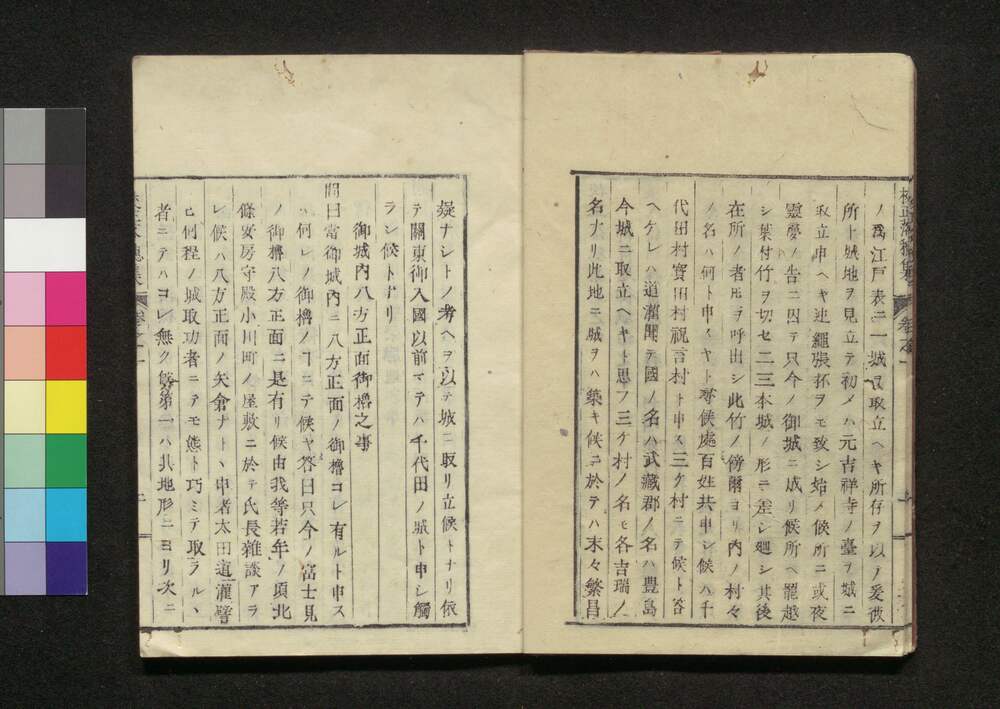 ノ爲江戸表ニ一城ヲ取立ヘキ所存ヲ以ノ爰彼
所ト城地ヲ見立テ初メハ元吉祥寺ノ臺ヲ城ニ
取立申ヘキ迚繩張抔ヲモ致シ始メ候所ニ或夜
靈夢ノ告ニ因テ只今ノ御城ニ成リ候所ヘ罷越
シ葉付竹ヲ切セ二三本城ノ形ニ差シ廻シ其後
在所ノ者𪜈ヲ呼出シ此竹ノ傍爾ヨリ内ノ村々
ノ名ハ何ト申スヤト尋候處百姓共申シ候ハ千
代田村寳田村祝言村ト申ス三ケ村ニテ候ト答
ヘケレハ道灌聞テ國ノ名ハ武藏郡ノ名ハ豊島
今城ニ取立ヘキト思フ三ケ村ノ名モ各吉瑞ノ
名ナリ此地ニ城ヲハ築キ候ニ於テハ末々繁昌
疑ナシトノ考ヘヲ以テ城ニ取リ立候トナリ依
テ關東御入國以前マテハ千代田ノ城ト申シ觸
ラシ候トナリ
御城内八方正面御櫓之事
問曰當御城内ニ八方正面ノ御櫓コレ有ルト申ス
ハ何レノ御櫓ノヿニテ候ヤ答曰只今ノ富士見
ノ御櫓八方正面ニ是有リ候由我等若年ノ頃北
條安房守殿小川町ノ屋敷ニ於テ氏長雜談アラ
レ候ハ八方正面ノ矢倉ナトヽ申者太田道灌譬
ヒ何程ノ城取功者ニテモ態ト巧ミテ取ラルヽ
者ニテハコレ無ク第一ハ其地形ニヨリ次ニ